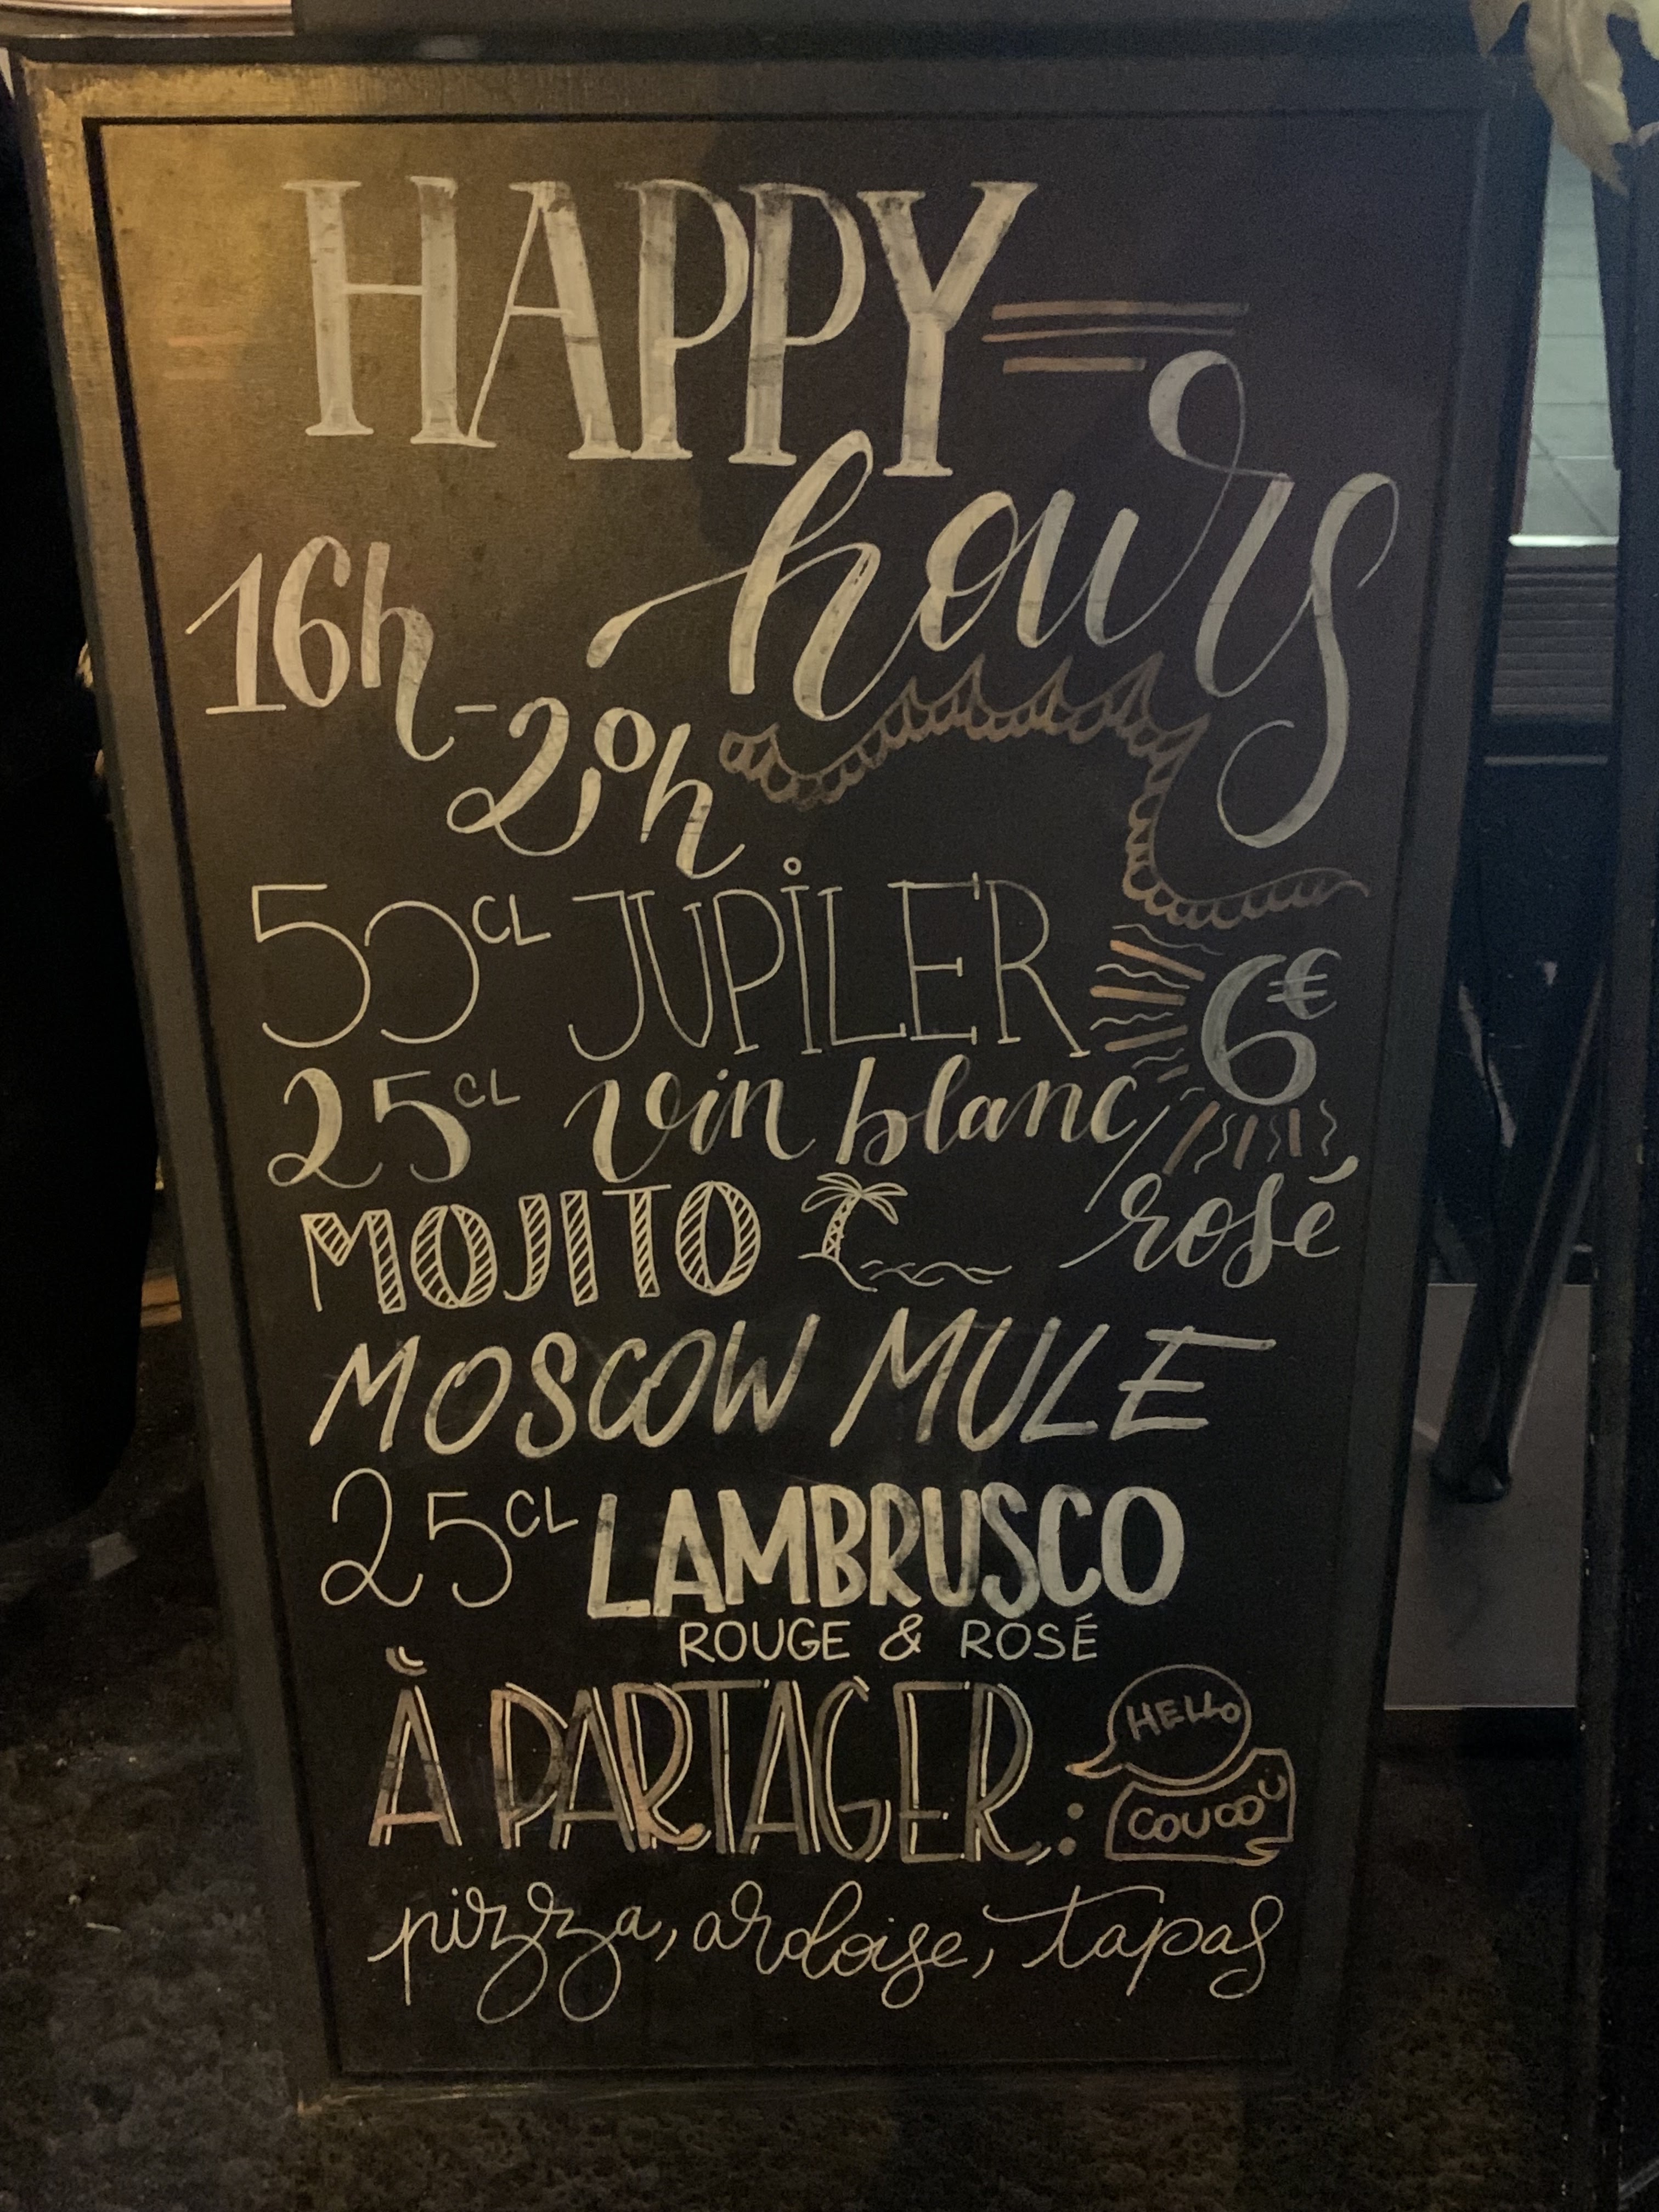 HAPPY
hours
16h - 20h
50CL JUPiLER 6€
25CL vin blanc / rosé
MOJITO
MOSCOW MULE
25CL LAMBRUSCO
ROUGE & ROSÉ
À PARTAGER :
HELLO
COUCOU
pizza, ardoise, tapas